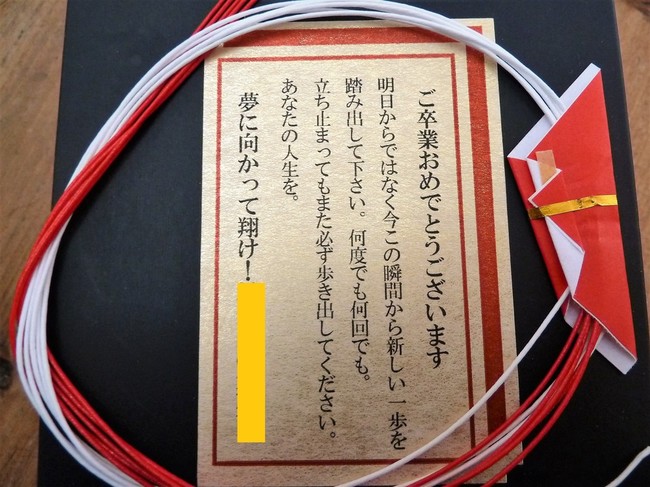 ご卒業おめでとうございます
明日からではなく今この瞬間から新しい一歩を
踏み出して下さい。何度でも何回でも。
立ち止まってもまた必ず歩き出してください。
あなたの人生を。
夢に向かって翔け！